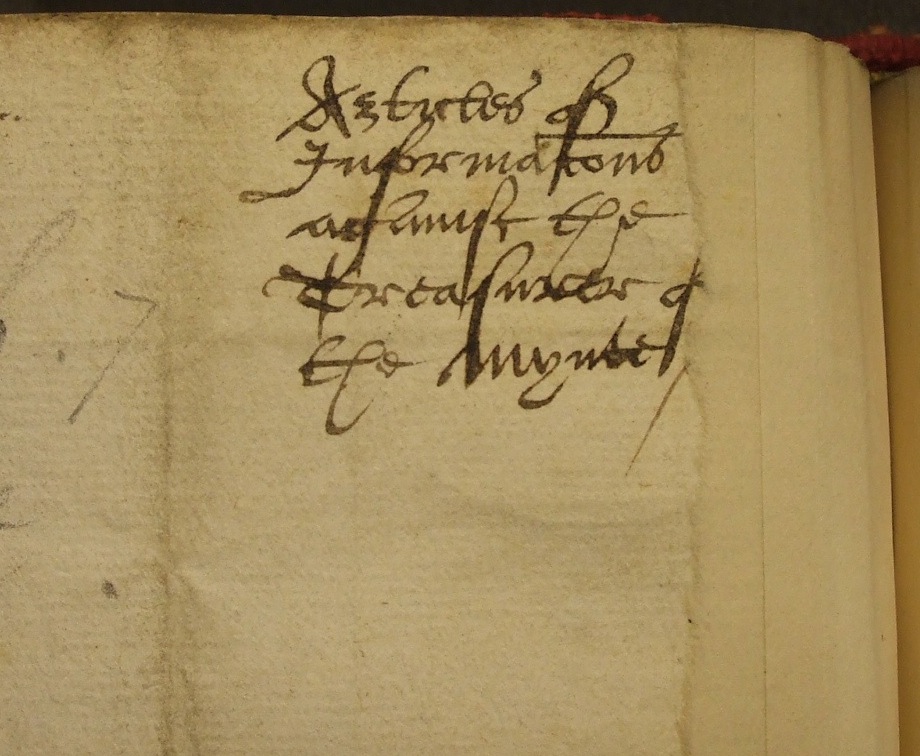 Articles of
Informacons
against the
Treasurer of
the Mynte